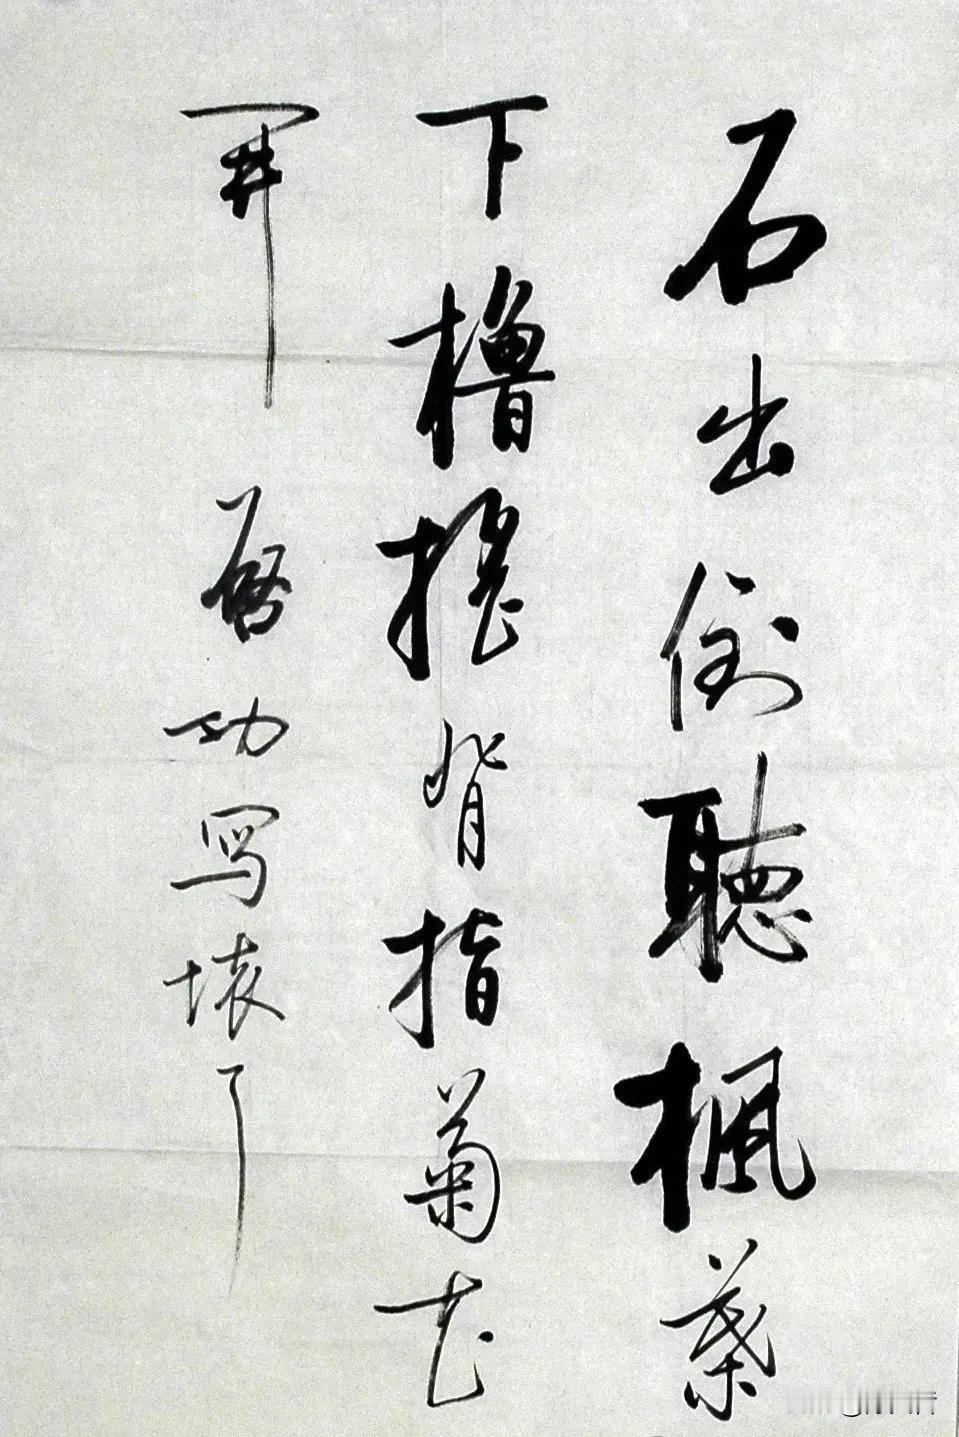 石出倒聽楓葉
下櫓搖背指菊花
開 啓功写壊了